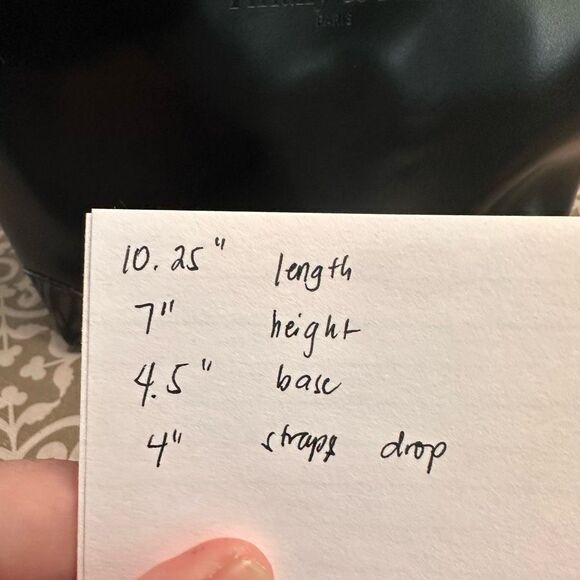 PARIS
10.25" length
7" height
4.5" base
4" straps drop